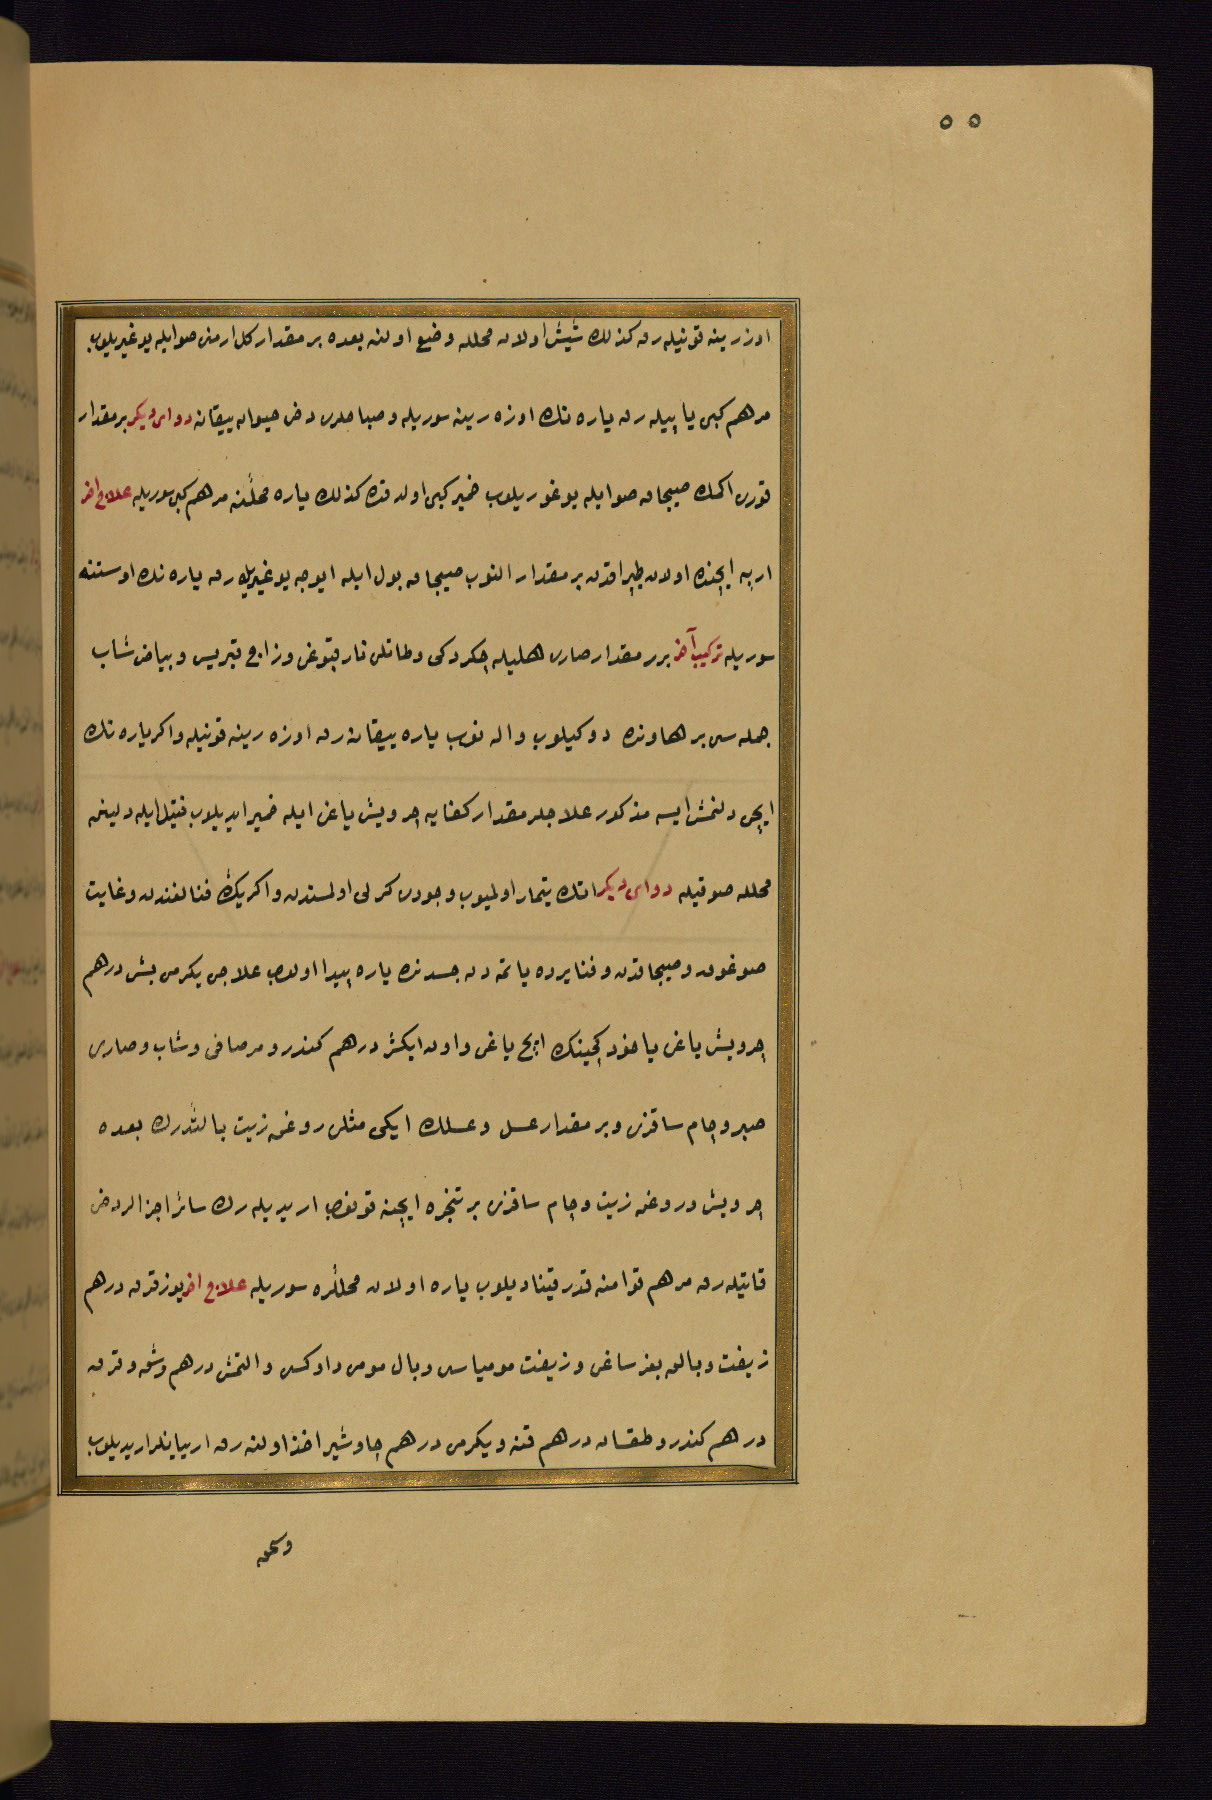 ٥٥
اوزرینه قونیله ره کذلك شیش اولان محلله وضع اولنه بعده بر مقدار کل ارمنی صو ایله یوغیریلوب
مرهم کبی یاپیله ره یاره نك اوزه رینه سوریله و صباحلری دخی حیوان ییقانه دوای دیکر بر مقدار
قوری اکمك صیجاق صو ایله یوغوریلوب خمیر کبی اولدقده کذلك یاره محلّنه مرهم کبی سوریله علاج اخر
ارپه ایچنده اولان طپراقدن بر مقدار النوب صیجاق بول ایله ایوجه یوغیریله ره یاره نك اوستنه
سوریله ترکیب آخر برر مقدار صاری هلیله چکردکی و طاتلی نار قبوغی و زاج قبریس و بیاض شاب
جمله سی بر هاونده دوکیلوب و النوب یاره ییقانه ره اوزه رینه قونیله و اکر یاره نك
ایچی دلنمش ایسه مذکور علاجلر مقدار کفایه چرویش یاغی ایله خمیر ایدیلوب فتیل ایله دلینی
محلله صوقیله دوای دیکر اتك یتمار اولمیوب وجودی کرلی اولمسندن و اکریك فنالغندن و غایت
صوغوق و صیجاقدن و فنا یرده یاتمه دن جسدنده یاره پیدا اولوب علاجی یکرمی بش درهم
چرویش یاغی یاخود کچینك ایچ یاغی و اون ایکشر درهم کندر و مر صافی و شاب و صاری
صبر و چام ساقزی و بر مقدار عسل و عسلك ایکی مثلی روغن زیت بالتدرك بعده
چرویش و روغن زیت و چام ساقزی بر تنجره ایچنه قونوب اریدیله رك سائر اجزالر دخی
قاتیله ره مرهم قوامنه قدر قینادیلوب یاره اولان محللره سوریله علاج اخر یوز قرق درهم
زیفت و بالق بغرساغی و زیفت مومیاسی و بال مومی و اوکسی و التمش درهم وشه و قرق
درهم کندر و طقسان درهم قنه و یکرمی درهم چاوشیر اخذ اولنه ره ارییانلر اریدیلوب
وسحق